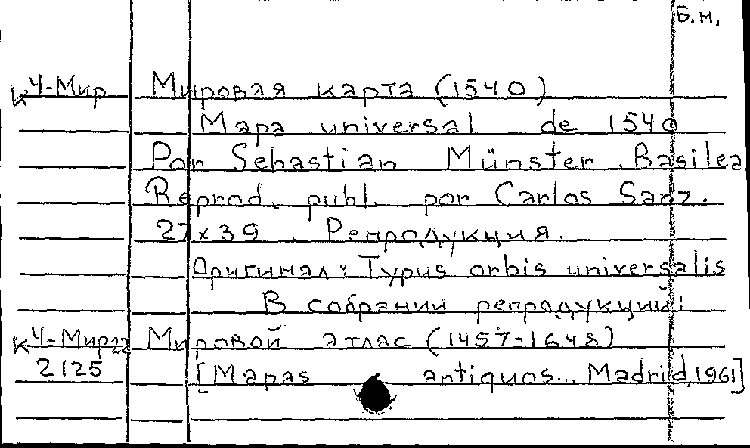 Б.м.
К4-Мир Мировая карта (1540)
Mapa universal de 1540
Por Sebastian Münster. Basilea
Reprod. publ. por Carlos Sanz.
27x39. Репродукция.
Оригинал: Typus orbis universalis
В собрании репродукций:
К4-Мир22 Мировой атлас (1457-1648)
2125 [Mapas antiquos... Madrid, 1961]